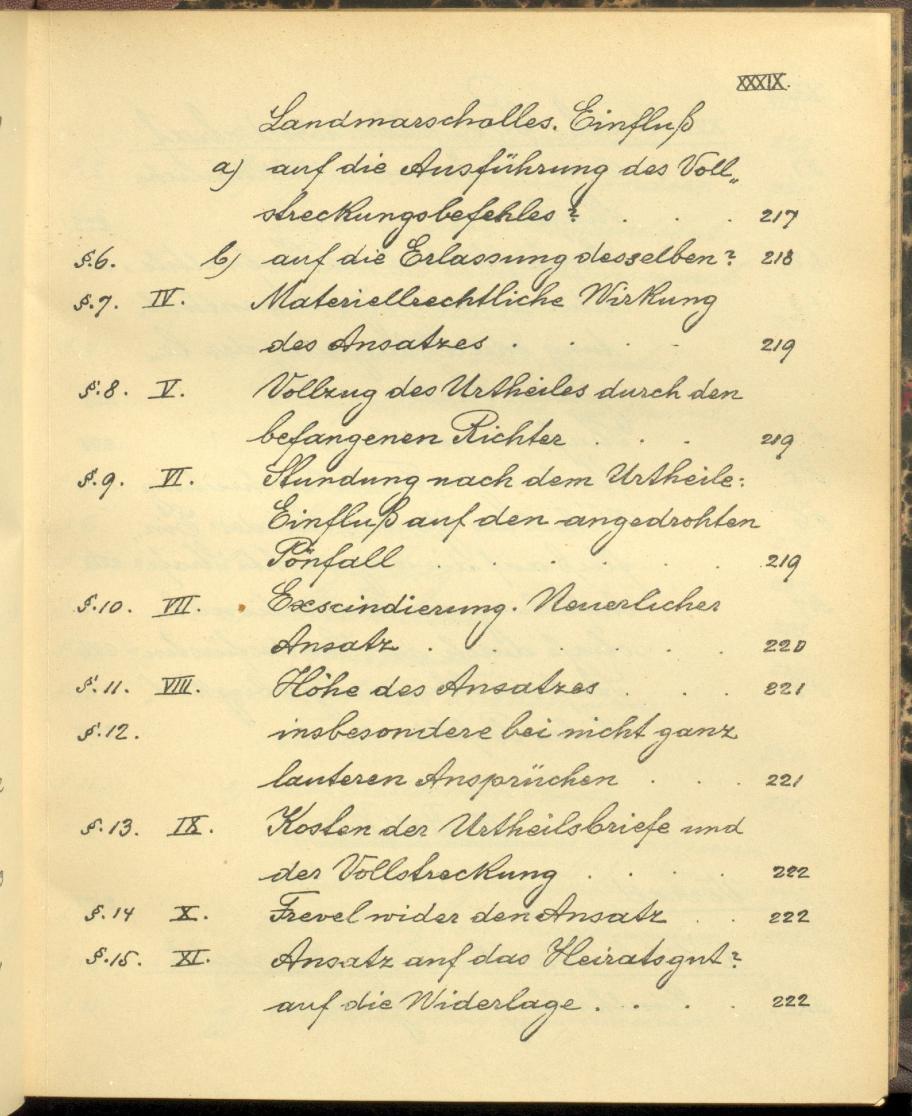 XXXIX.
Landmarschalles. Einfluß
a) auf die Ausführung des Voll„
streckungsbefehles? . . . . 217
§.6. b) auf die Erlassung desselben? 218
§.7. IV. Materiellrechtliche Wirkung
des Ansatzes . . . . . 219
§.8. V. Vollzug des Urtheiles durch den
befangenen Richter . . . 219
§.9. VI. Stundung nach dem Urtheile:
Einfluß auf den angedrohten
Pönfall . . . . 219
§.10. VII. Exscindierung. Neuerlicher
Ansatz . . . . . 220
§.11. VIII. Höhe des Ansatzes . . . 221
§.12. insbesondere bei nicht ganz
lauteren Ansprüchen . . . 221
§.13. IX. Kosten der Urtheilsbriefe und
der Vollstreckung . . . . 222
§.14 X. Frevel wider den Ansatz . . 222
§.15. XI. Ansatz auf das Heiratsgut?
auf die Widerlage . . . . 222